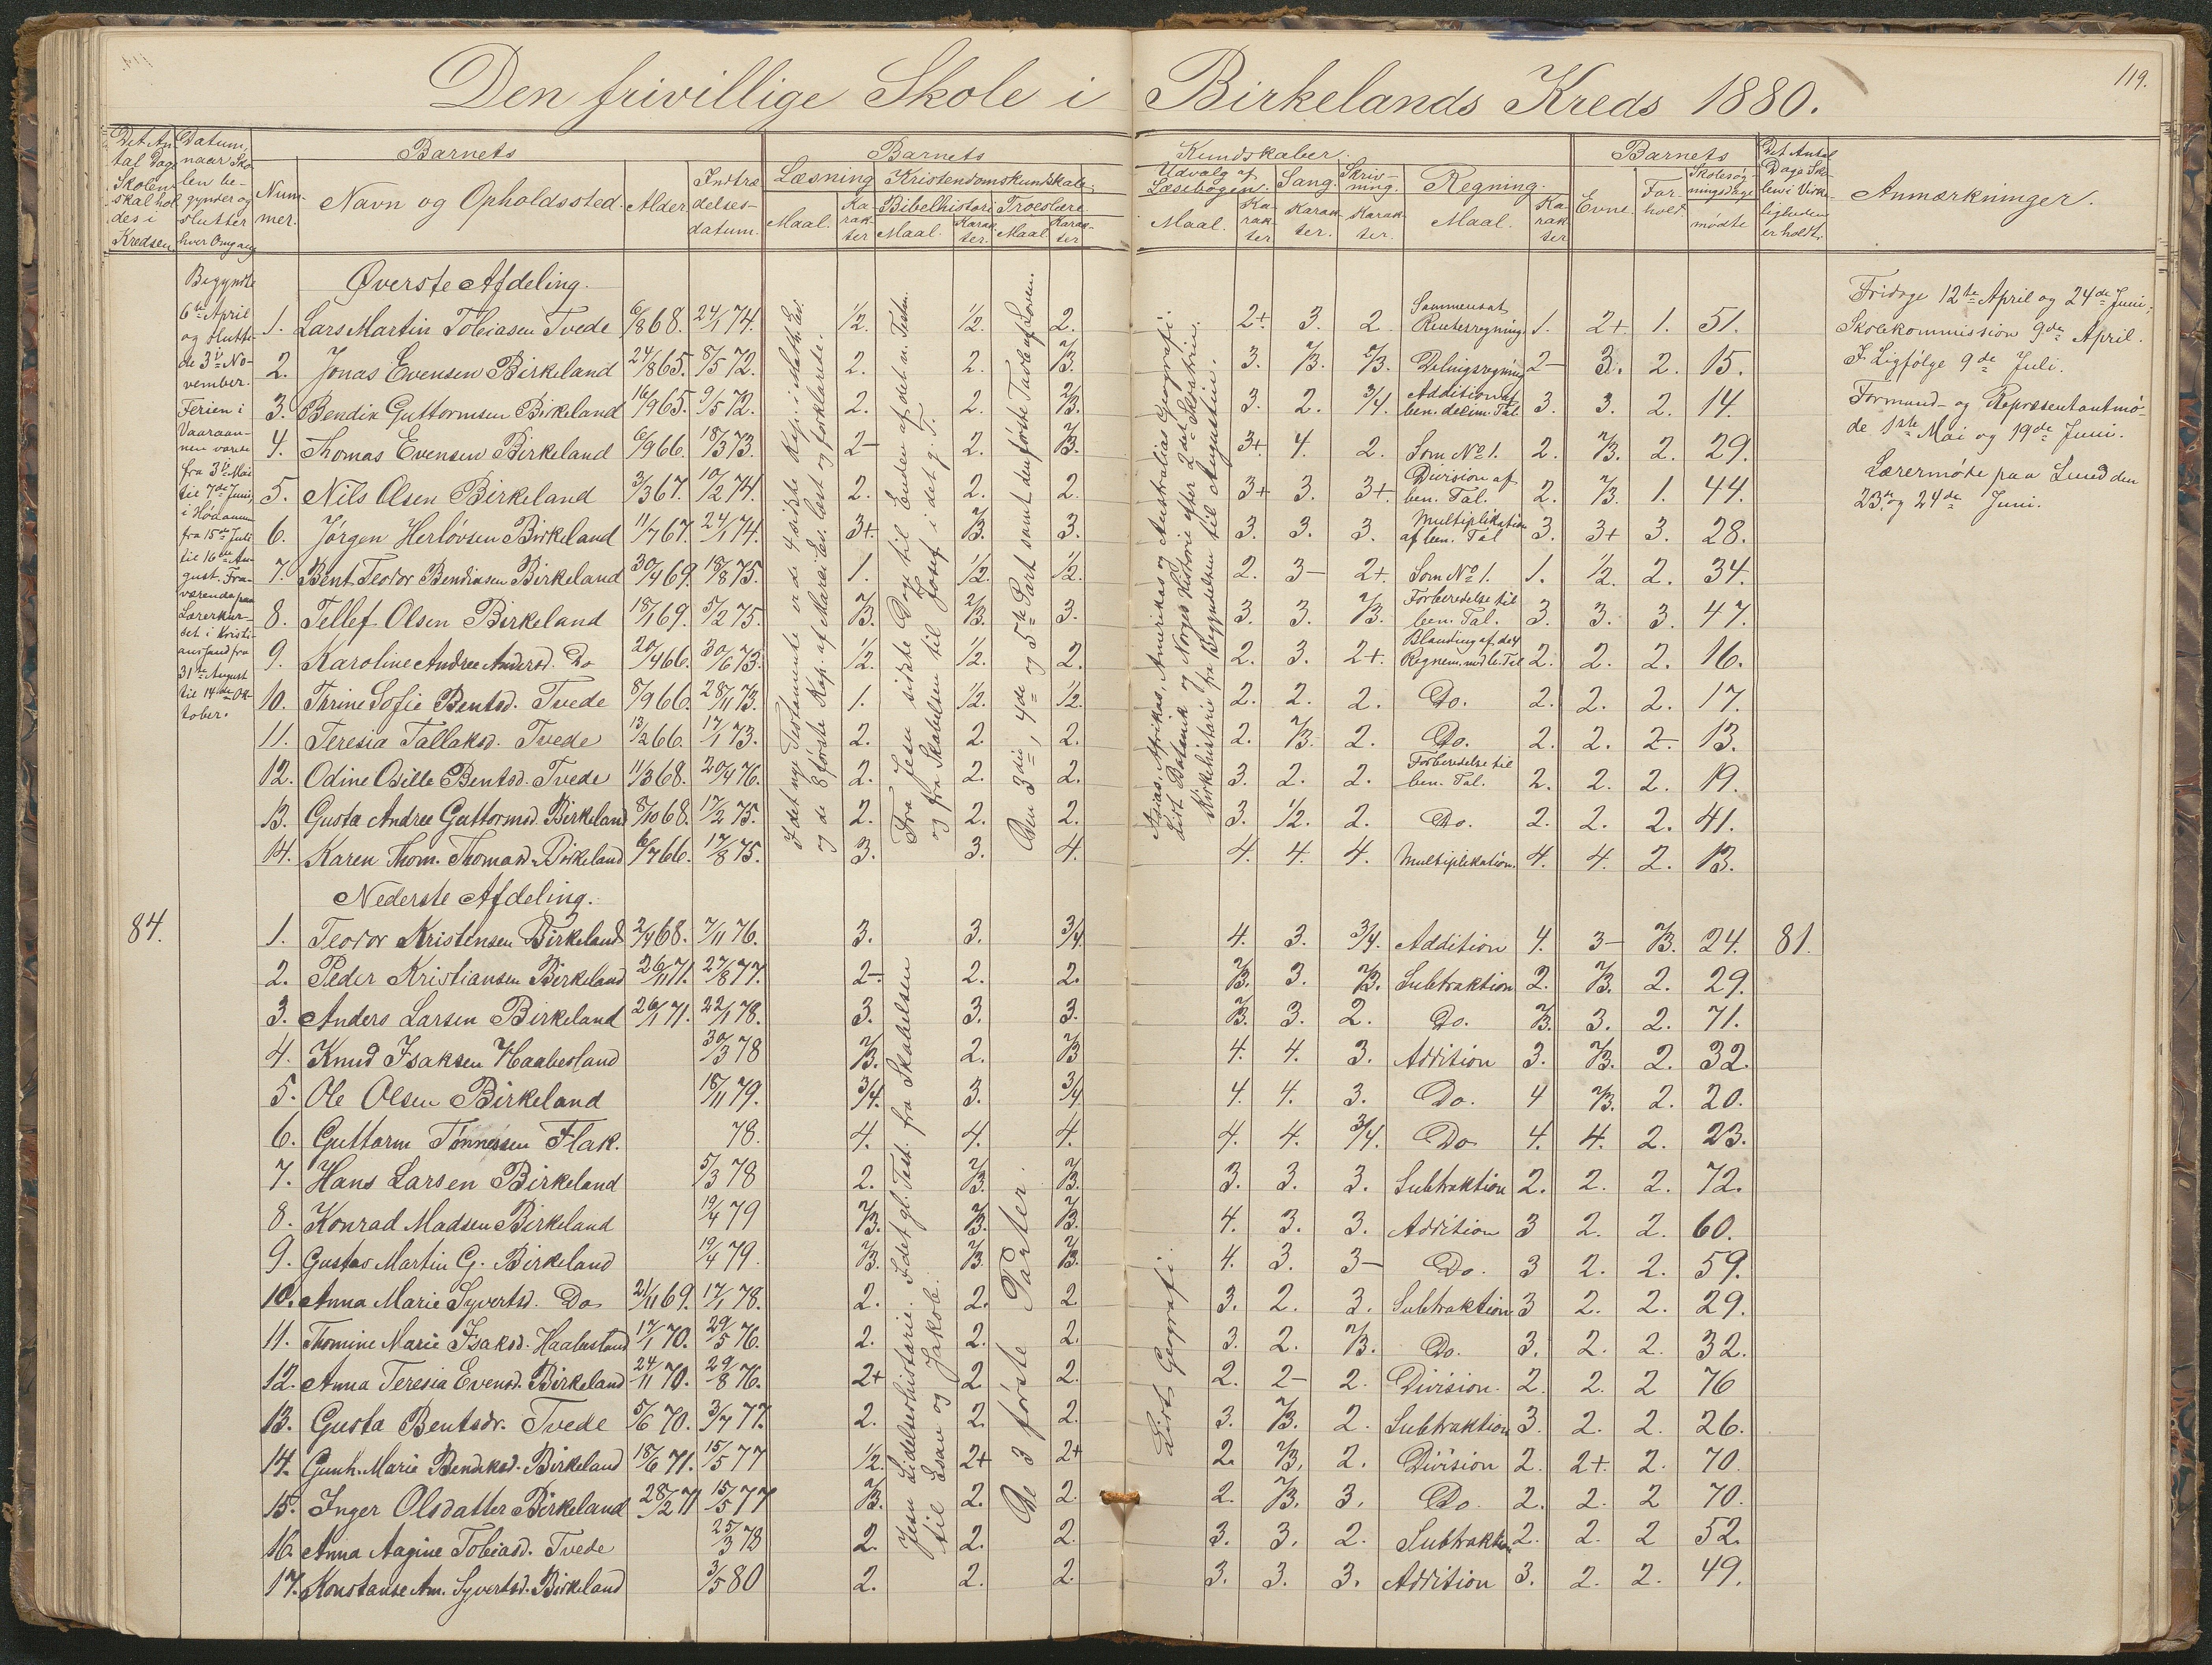 Den frivillige Skole i Birkelands Kreds 1880.
119.
Det An-
tal Dage
Skolen
skal hol-
des i
Kredsen
Datum,
naar Sko-
len be-
gynder og
slutter
hver Omgang
Barnets
Num-
mer.
Navn og Opholdssted.
Alder
Indtræ-
delses-
datum.
Barnets Kundskaber.
Læsning
Maal.
Ka-
rak-
ter
Kristendomskundskab.
Bibelhistorie
Maal.
Karak-
ter.
Troeslære
Maal
Karak-
ter
Udvalg af
Læsebogen.
Maal.
Ka-
rak-
ter
Sang.
Karak-
ter.
Skriv-
ning.
Karak-
ter.
Regning.
Maal.
Ka-
rak-
ter
Barnets
Evne.
For-
hold.
Skolesøg-
ningsdage
mødte
Det Antal
Dage Sko-
len i Virke-
ligheden
er holdt.
Anmærkninger.
Begyndte
6te April
og slutte-
de 3die No-
vember.
Ferien i
Vaaraan-
nen varte
fra 3die Mai
til 7de Juni,
i Høaannen
fra 15de Juli
til 16de Au-
gust. Fra-
værende paa
Lærerkur-
set i Kristi-
anssand fra
31te August
til 14de Ok-
tober.
Øverste Afdeling.
1. Lars Martin Tobiasen Tvede 6/8 68. 24/1 74. 1/2. 1/2. 2. 2+. 3. 2 Sammensat Renteregning 1. 2+ 1. 51.
2. Jonas Evensen Birkeland 24/8 65. 8/5 72. 2. 2. 2/3. 3. 2/3. 2/3. Delingsregning 2- 3. 2. 15.
3. Bendik Guttormsen Birkeland 16/9 65. 9/5 72. 2. 2. 2/3. 3. 2. 3/4. Addition af ben. decim. Tal 3. 3. 2. 14.
4. Thomas Evensen Birkeland 6/9 66. 18/3 73. 2- 2. 2/3. 3+ 4. 2. Som No 1. 2. 2/3. 2. 29.
5. Nils Olsen Birkeland 3/3 67. 10/2 74. 2. 2. 2. 3+ 3. 3+. Division af ben. Tal. 2. 2/3. 1. 44.
6. Jørgen Herløvsen Birkeland 11/7 67. 24/1 74. 3+. 2/3. 3. 3. 3. 3. Multiplikation af ben. Tal 3. 3+ 3. 28.
7. Bent Teodor Bendiksen Birkeland 30/4 69. 18/8 75. 1. 1/2. 1/2. 2. 3- 2+. Som No 1. 1. 1/2. 2. 34.
8. Tellef Olsen Birkeland 18/1 69. 5/2 75. 2/3. 2/3. 3. 3. 3. 2/3. Forberedelse til ben. Tal. 3. 3. 3. 47.
9. Karoline Andrea Andersd. Do 20/4 66. 30/6 73. 1/2. 1/2. 2. 2. 3. 2+. Blanding af de 4 Regnem. med b. Tal 2. 2. 2. 16.
10. Thrine Sofie Bentsd. Tvede 8/9 66. 28/11 73. 1. 1/2. 1/2. 2. 2. 2. Do. 2. 2. 2. 17.
11. Teresia Tallaksd. Tvede 13/2 66. 17/1 73. 2. 2. 2. 2. 2/3. 2. Do. 2. 2. 2. 13.
12. Odine Osille Bentsd. Tvede 11/3 68. 20/4 76. 2. 2. 2. 3. 2. 2. Forberedelse til ben. Tal. 2. 2. 2. 19.
13. Gusta Andrea Guttormsd. Birkeland 8/10 68. 17/2 75. 2. 2. 2. 3. 1/2. 2. Do. 2. 2. 2. 41.
14. Karen Thom. Thomasd. Birkeland 6/7 66. 17/8 75. 3. 3. 4. 4. 4. 4. Multiplikation. 4. 4. 2. 13.
I det nye Testamente er de 4 sidste Kap. i Math. Ev.
og de 8 første Kap. af Marci Ev. læst og forklarede.
Fra Jesu sidste Dage til Enden af det n. Testm.
og fra Skabelsen til Josef i det g. T.
Den 3die, 4de og 5te Part samt den første Tavle af Loven.
Asias, Afrikas, Amerikas og Australias Geografi.
Lidt Botanik og Norges Historie efter 2det Skoletrin.
Kirkehistorie fra Begyndelsen til Augustin.
Nederste Afdeling.
84.
1. Teodor Kristensen Birkeland 2/4 68. 7/11 76. 3. 3. 3/4. 4. 3. 3/4. Addition 4. 3- 2/3. 24. 81.
2. Peder Kristiansen Birkeland 26/11 71. 27/8 77. 2- 2. 2. 2/3. 3. 2/3. Subtraktion 2. 2/3. 2. 29.
3. Anders Larsen Birkeland 26/1 71. 22/1 78. 3. 3. 3. 2/3. 3. 2. Do. 2/3. 3. 2. 71.
4. Knud Isaksen Haabesland 30/3 78 2/3. 2. 2/3 4. 4. 3. Addition 3. 2/3. 2. 32.
5. Ole Olsen Birkeland 18/11 79. 3/4. 3. 3/4 4. 4. 3. Do. 4 2/3. 2. 20.
6. Guttorm Tønnessen Flak. 78. 4. 4. 4. 4. 4. 3/4. Do 4. 4. 2. 23.
7. Hans Larsen Birkeland 5/3 78 2. 2/3. 2/3. 3. 3. 3. Subtraktion 2. 2. 2. 72.
8. Konrad Madsen Birkeland 19/4 79 2/3. 2/3. 2/3. 4. 3. 3. Addition 3 2. 2. 60.
9. Gustav Martin G. Birkeland 19/4 79. 2/3. 2/3. 2/3. 4. 3. 3- Do. 3 2. 2. 59.
10. Anna Marie Syvertsd. Do 21/11 69. 17/1 78. 2. 2. 2 3. 2. 3. Subtraktion 3 2. 2. 29.
11. Thomine Marie Isaksd. Haabesland 17/1 70. 29/5 76. 2. 2. 2. 3. 2. 2/3. Do. 3. 2. 2. 32.
12. Anna Teresia Evensd. Birkeland 24/11 70. 29/8 76. 2+ 2 2. 2. 2- 2. Division. 2. 2. 2 76
13. Gusta Bentsdr. Tvede 5/6 70. 3/7 77. 2. 2. 2. 3. 2/3. 2. Subtraktion 3. 2. 2. 26.
14. Gunh. Marie Bendiksd. Birkeland 18/6 71. 15/5 77 1/2. 2+ 2+ 2. 2/3. 2. Division 2. 2+. 2. 70.
15. Inger Olsdatter Birkeland 28/2 71 15/5 77 2/3. 2. 2. 2. 2/3. 3. Do. 2. 2. 2 70.
16. Anna Aagine Tobiasd. Tvede 25/3 78 2. 2. 2. 3. 3. 2. Subtraktion 2. 2. 2 52.
17. Konstanse Am. Syvertsd. Birkeland 3/5 80 2. 2. 2. 3. 3. 3. Addition 3. 2. 2. 49.
Jesu Lidelseshistorie. I det gl. Test. fra Skabelsen
til Esau og Jakob.
De 3 første Parter.
Lidt Geografi.
Fridage 12te April og 24de Juni;
Skolekommission 9de April.
I Ligfølge 9de Juli.
Formand- og Repræsentantmø-
de 1ste Mai og 19de Juni.
Lærermøde paa Lund den
23de og 24de Juni.